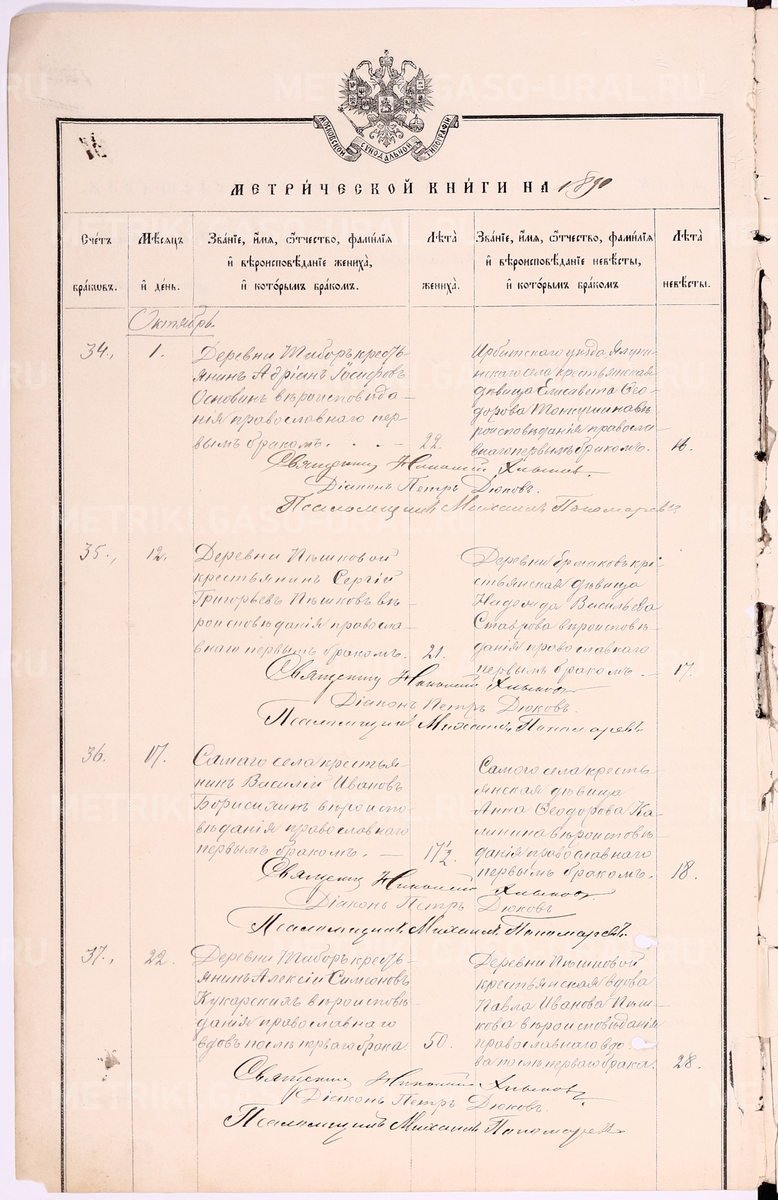 МОСКОВСКОЙ СУНОДАЛЬНОЙ ТИПОГРАФІИ
МЕТРИЧЕСКОЙ КНИГИ НА 1890
Счетъ браковъ.
Мѣсяцъ и день.
Званіе, имя, отчество, фамилія и вѣроисповѣданіе жениха, и которымъ бракомъ.
Лѣта жениха.
Званіе, имя, отчество, фамилія и вѣроисповѣданіе невѣсты, и которымъ бракомъ
Лѣта невѣсты.
Октябрь
34., 1.
Деревни Таборъ кресть-
янинъ Адріанъ
Основинъ вѣроисповѣда-
нія православнаго пер-
вымъ бракомъ. 22.
Ирбитскаго уѣзда
села крестьянская
дѣвица Елисавета Ѳео-
дорова вѣ-
роисповѣданія правосла-
внаго первымъ бракомъ. 16.
Священникъ Николай
Діаконъ Петръ Дюковъ.
Псаломщикъ Михаилъ Пономаревъ
35., 12.
Деревни Пѣшковой
крестьянинъ Сергій
Григорьевъ Пѣшковъ вѣ-
роисповѣданія правосла-
внаго первымъ бракомъ. 21.
Деревни Ермаковъ кре-
стьянская дѣвица
Надежда Васильева
Ставрова вѣроисповѣ-
данія православнаго
первымъ бракомъ. 17.
Священникъ Николай
Діаконъ Петръ Дюковъ.
Псаломщикъ Михаилъ Пономаревъ
36. 17.
Самаго села крестья-
нинъ Василій Ивановъ
Борисихинъ вѣроиспо-
вѣданія православнаго
первымъ бракомъ. 17½.
Самого села кресть-
янская дѣвица
Анна Ѳеодорова Ка-
линина вѣроисповѣ-
данія православнаго
первымъ бракомъ. 18.
Священникъ Николай
Діаконъ Петръ Дюковъ
Псаломщикъ Михаилъ Пономаревъ.
37., 22.
Деревни Таборъ кресть-
янинъ Алексій Симеоновъ
Кукарскихъ вѣроисповѣ-
данія православнаго
вдовъ послѣ перваго брака 50.
Деревни Пѣшковой
крестьянская вдова
Павла Иванова Пѣш-
кова вѣроисповѣданія
православнаго вдо-
ва послѣ перваго брака. 28.
Священникъ Николай
Діаконъ Петръ Дюковъ.
Псаломщикъ Михаилъ Пономаревъ
METRIKI.GASO-URAL.RU